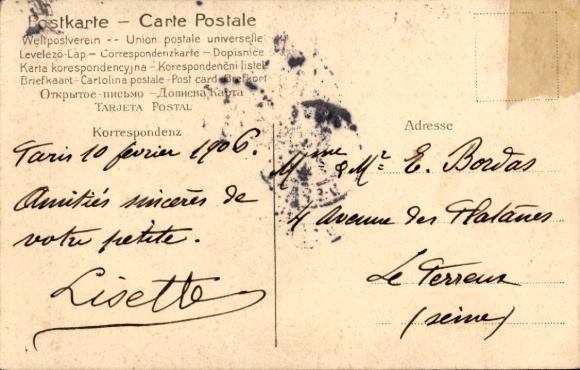 Postkarte – Carte Postale
Weltpostverein -- Union postale universelle
Levelező-Lap – Correspondenzkarte – Dopisnice
Karta korespondencyjna – Korespondenční listek
Briefkaart – Cartolina postale – Post card – Brefkort
Открытое-письмо – Дописна Карта
Tarjeta Postal
Korrespondenz
Paris 10 février 1906.
Amitiés sincères de
votre petite.
Lisette
Adresse
Mme & Mr E. Bordas
4 Avenue des Platanes
Le Perreux
(seine)